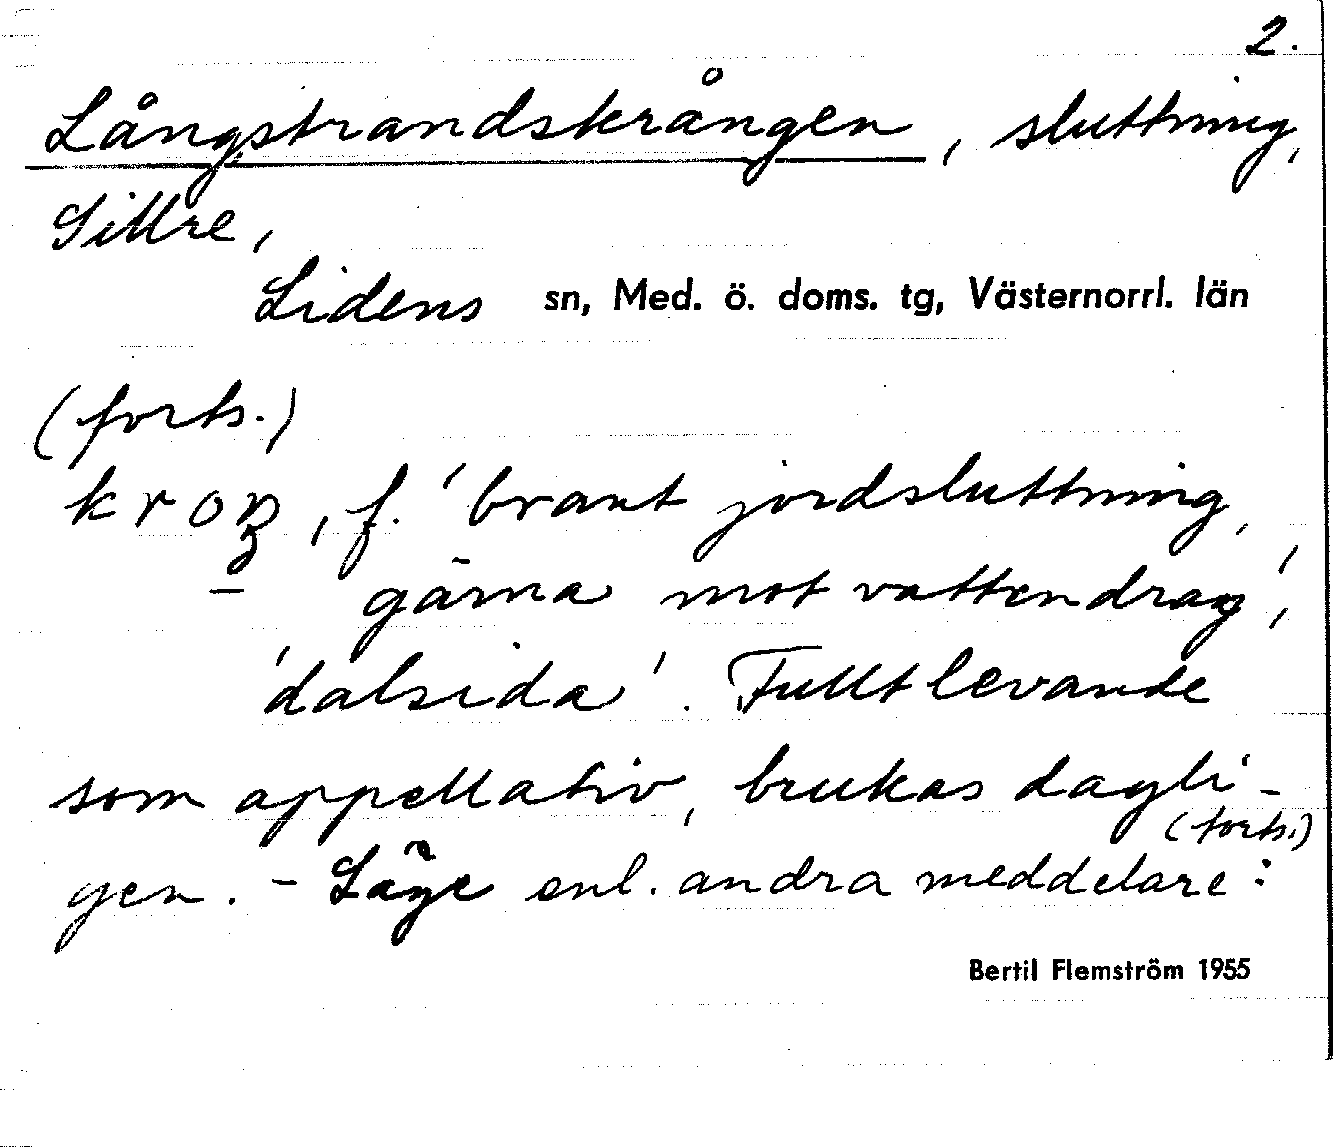 2.
Långstrandskrången, sluttning,
Sillre,
Lidens sn, Med. ö. doms. tg, Västernorrl. län
(forts.)
kroŋ, f. 'brant jordsluttning,
gärna mot vattendrag',
'dalsida'. Fullt levande
som appellativ, brukas dagli-
gen. - Läge enl. andra meddelare:
(forts.)
Bertil Flemström 1955